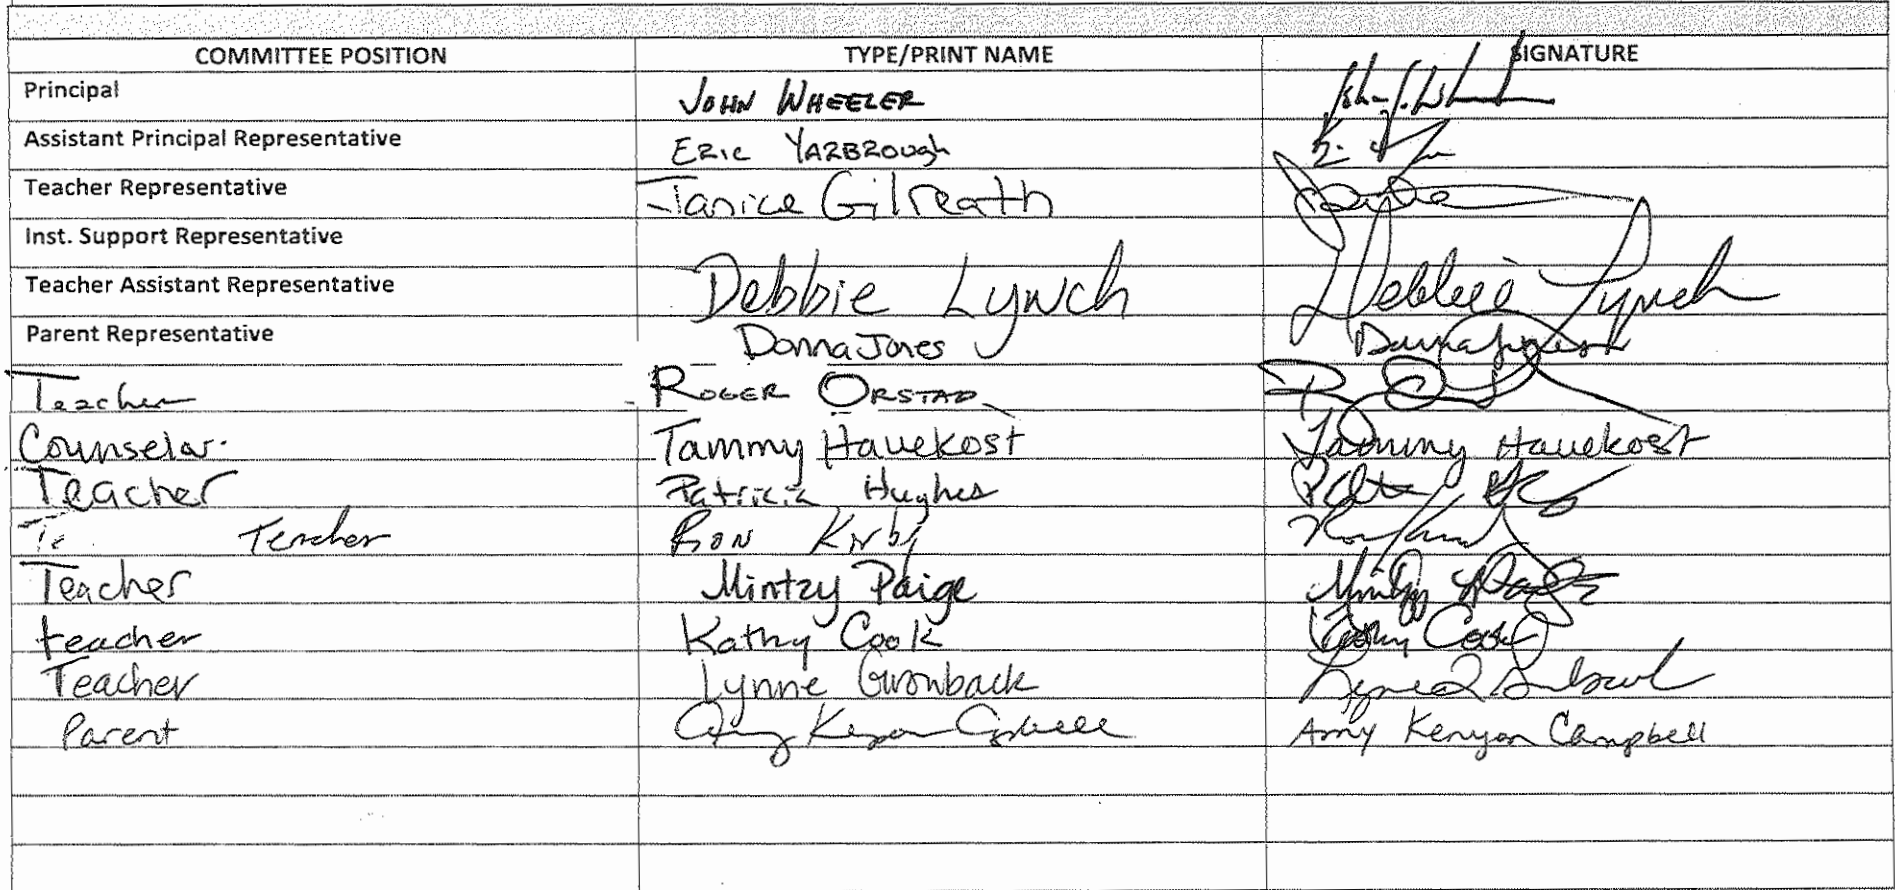 COMMITTEE POSITION TYPE/PRINT NAME SIGNATURE
Principal JOHN WHEELER
Assistant Principal Representative ERIC YARBROUGh
Teacher Representative Janice Gilreath
Inst. Support Representative
Teacher Assistant Representative Debbie Lynch Debbie Lynch
Parent Representative Donna Jones Donna Jones
Teacher ROGER ORSTAD
Counselor Tammy Havekost Tammy Havekost
Teacher Patricia Hughes
Te Teacher RON Kirby
Teacher Mintzy Paige Mintzy Paige
teacher Kathy Cook Kathy Cook
Teacher Lynne
Parent Amy Kenyon Campbell Amy Kenyon Campbell